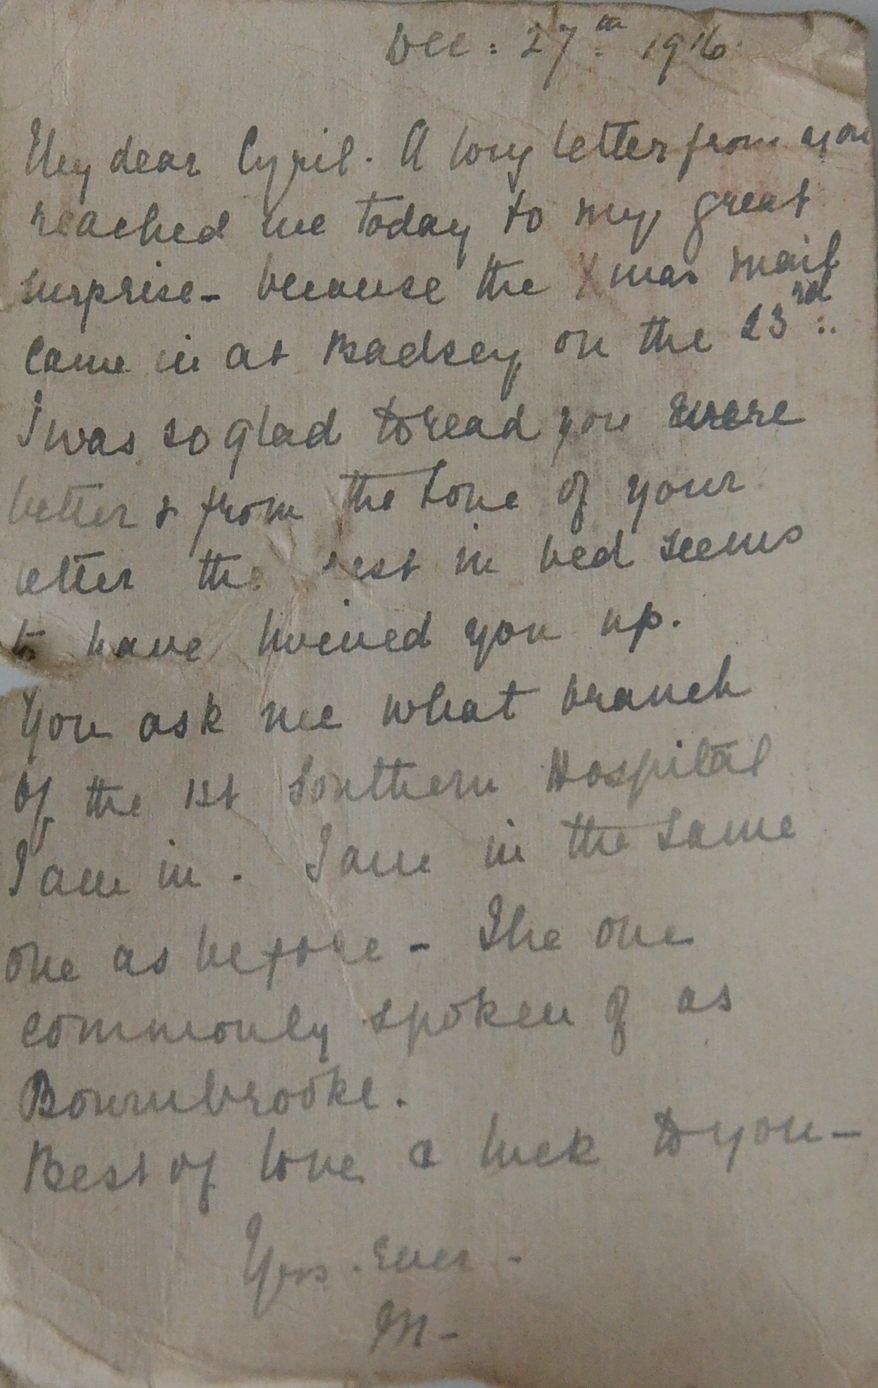 Dec: 27th 1916.
My dear Cyril. A long letter from you
reached me today to my great
surprise - because the Xmas mail
came in at Badsey on the 23rd.
I was so glad to read you were
better & from the tone of your
letter the rest in bed seems
to have livened you up.
You ask me what branch
of the 1st Southern Hospital
I am in. I am in the same
one as before - The one
commonly spoken of as
Bournbrooke.
Best of love & luck to you -
Yrs. Ever -
M -